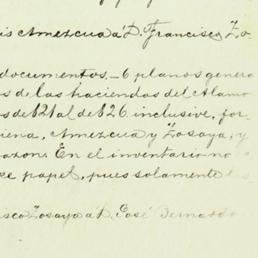 is Amezcua á D. Francisco Zo-
documentos.—6 planos genera
os de las haciendas del Alamo
os de 121 al de 126 inclusive, for
iena, Amezcua y Zosaya; y
razon. En el inventario no
ce papel, pues solamente
isco Zosaya á D. José Bernardo